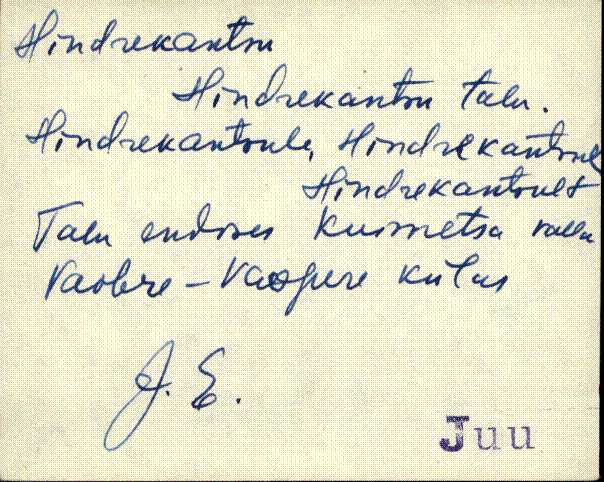 Hindrekantsu
Hindrekantsu talu.
Hindrekantsule, Hindrekantsul
Hindrekantsult
Talu endises Kuimetsa valla
Vaobre - Vaopere külas
J. E.
Juu